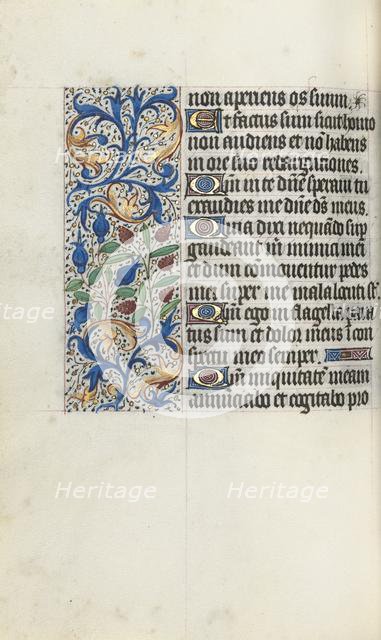 non aperiens os suum.
Et factus sum sicut homo
non audiens et no habens
in ore suo redargutiones.
Qm in te dne speravi tu
exaudies me dne ds meus.
Quia dixi nequado sup
gaudeant in inimici mei
et dum comoventur pedes
mei super me mala locuti st
Qm ego in flagella para
tus sum et dolor meus i con
spectu meo semper.
Qm iniquitate meam
annunciabo et cogitabo pro
Heritage
Heritage
Heritage
Heritage
Heritage
Heritage